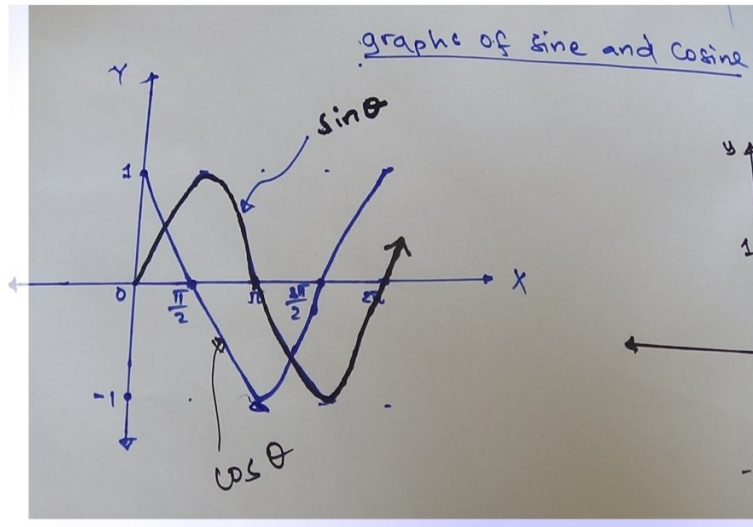 graphs of sine and cosine
Y
sinθ
y
1
1
0
π/2
π
3π/2
2π
X
-1
cosθ
-